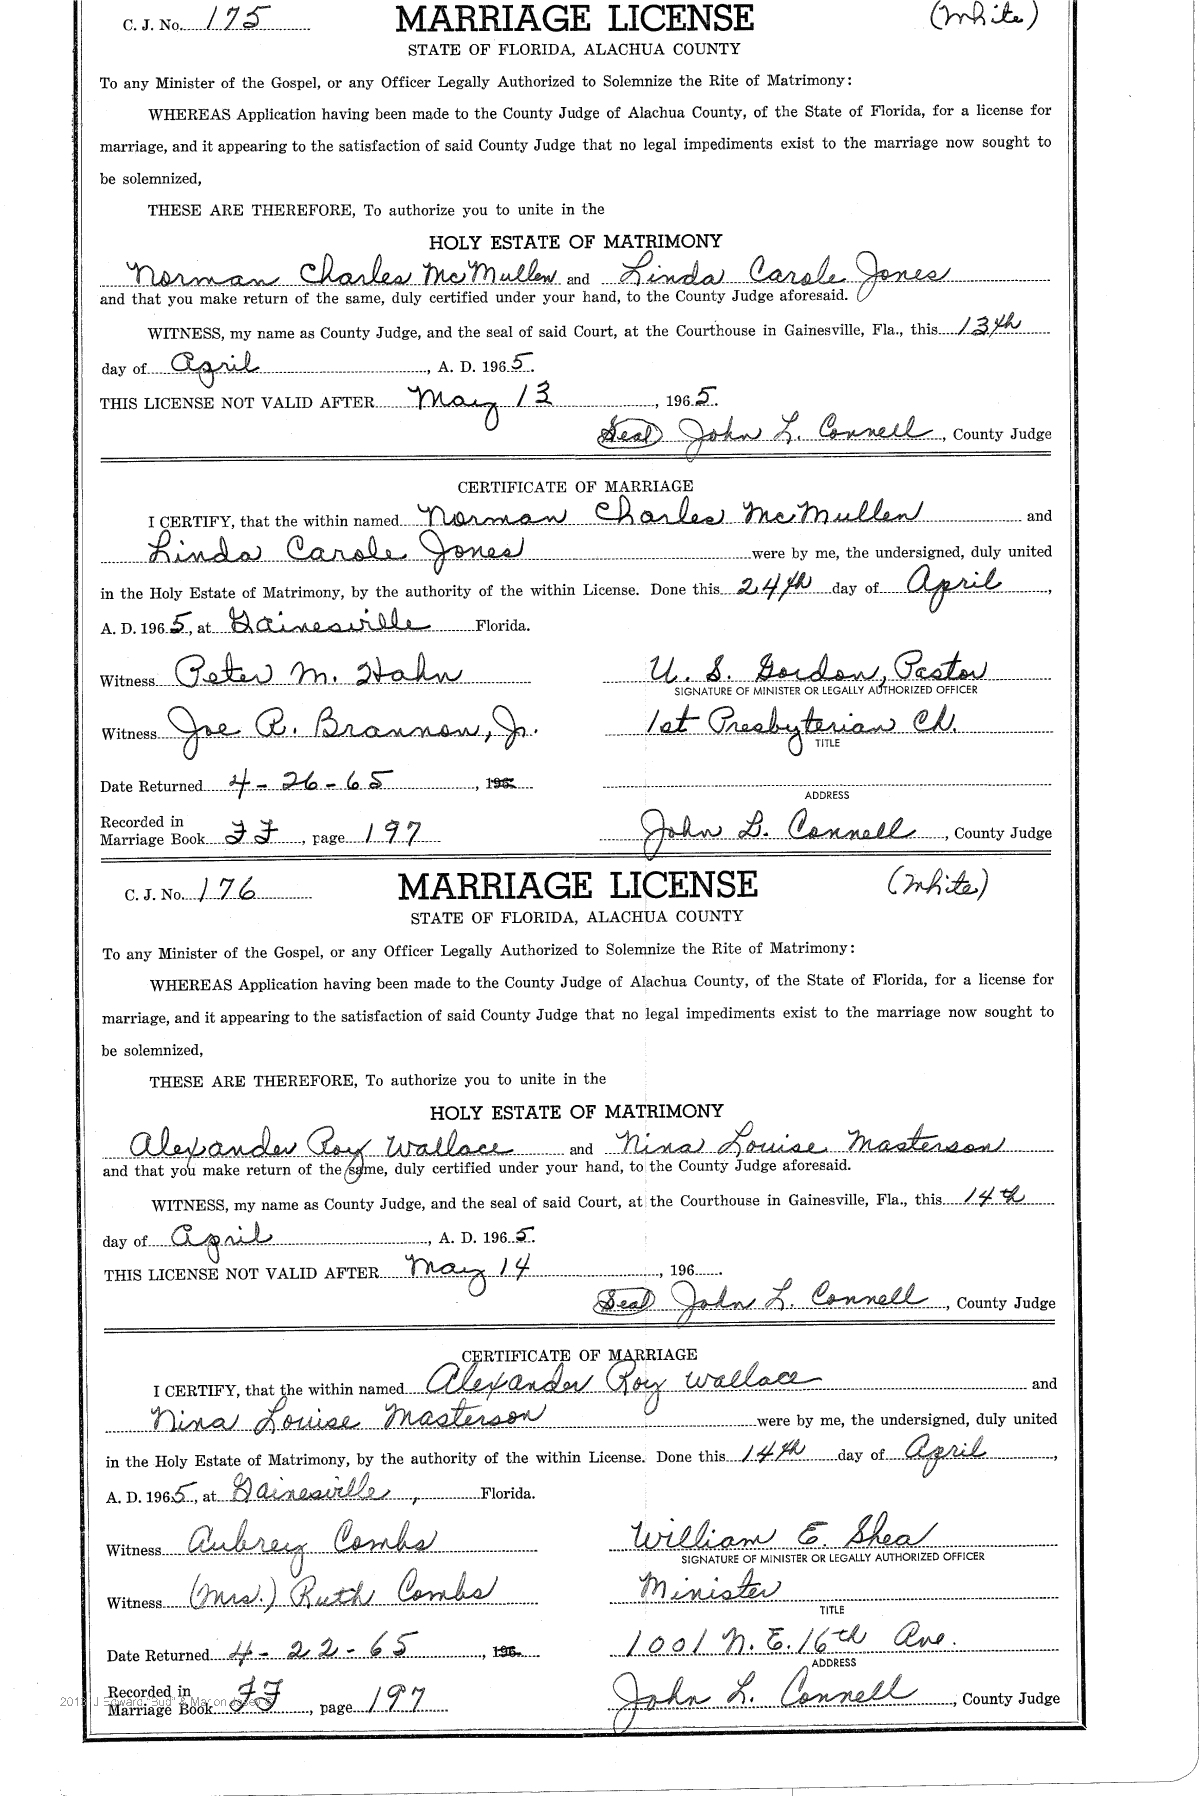 C. J. No. 175 MARRIAGE LICENSE (White)
STATE OF FLORIDA, ALACHUA COUNTY
To any Minister of the Gospel, or any Officer Legally Authorized to Solemnize the Rite of Matrimony:
WHEREAS Application having been made to the County Judge of Alachua County, of the State of Florida, for a license for
marriage, and it appearing to the satisfaction of said County Judge that no legal impediments exist to the marriage now sought to
be solemnized,
THESE ARE THEREFORE, To authorize you to unite in the
HOLY ESTATE OF MATRIMONY
Norman Charles McMullen and Linda Carole Jones
and that you make return of the same, duly certified under your hand, to the County Judge aforesaid.
WITNESS, my name as County Judge, and the seal of said Court, at the Courthouse in Gainesville, Fla., this 13th
day of April, A. D. 1965.
THIS LICENSE NOT VALID AFTER May 13, 1965.
(Seal) John L. Connell, County Judge
CERTIFICATE OF MARRIAGE
I CERTIFY, that the within named Norman Charles McMullen and
Linda Carole Jones were by me, the undersigned, duly united
in the Holy Estate of Matrimony, by the authority of the within License. Done this 24th day of April,
A. D. 1965, at Gainesville Florida.
Witness Peter M. Hahn U. S. Gordon, Pastor
SIGNATURE OF MINISTER OR LEGALLY AUTHORIZED OFFICER
Witness Joe R. Brannon, Jr. 1st Presbyterian Ch.
TITLE
Date Returned 4-26-65, 196
ADDRESS
Recorded in
Marriage Book FF, page 197 John L. Connell, County Judge
C. J. No. 176 MARRIAGE LICENSE (White)
STATE OF FLORIDA, ALACHUA COUNTY
To any Minister of the Gospel, or any Officer Legally Authorized to Solemnize the Rite of Matrimony:
WHEREAS Application having been made to the County Judge of Alachua County, of the State of Florida, for a license for
marriage, and it appearing to the satisfaction of said County Judge that no legal impediments exist to the marriage now sought to
be solemnized,
THESE ARE THEREFORE, To authorize you to unite in the
HOLY ESTATE OF MATRIMONY
Alexander Roy Wallace and Nina Louise Masterson
and that you make return of the same, duly certified under your hand, to the County Judge aforesaid.
WITNESS, my name as County Judge, and the seal of said Court, at the Courthouse in Gainesville, Fla., this 14th
day of April, A. D. 1965.
THIS LICENSE NOT VALID AFTER May 14, 196 .
(Seal) John L. Connell, County Judge
CERTIFICATE OF MARRIAGE
I CERTIFY, that the within named Alexander Roy Wallace and
Nina Louise Masterson were by me, the undersigned, duly united
in the Holy Estate of Matrimony, by the authority of the within License. Done this 14th day of April,
A. D. 1965, at Gainesville, Florida.
Witness Aubrey Combs William E. Shea
SIGNATURE OF MINISTER OR LEGALLY AUTHORIZED OFFICER
Witness (Mrs.) Ruth Combs Minister
TITLE
Date Returned 4-22-65, 196 1001 N. E. 16th Ave.
ADDRESS
Recorded in
Marriage Book FF, page 197 John L. Connell, County Judge
J Edward "Bud" &